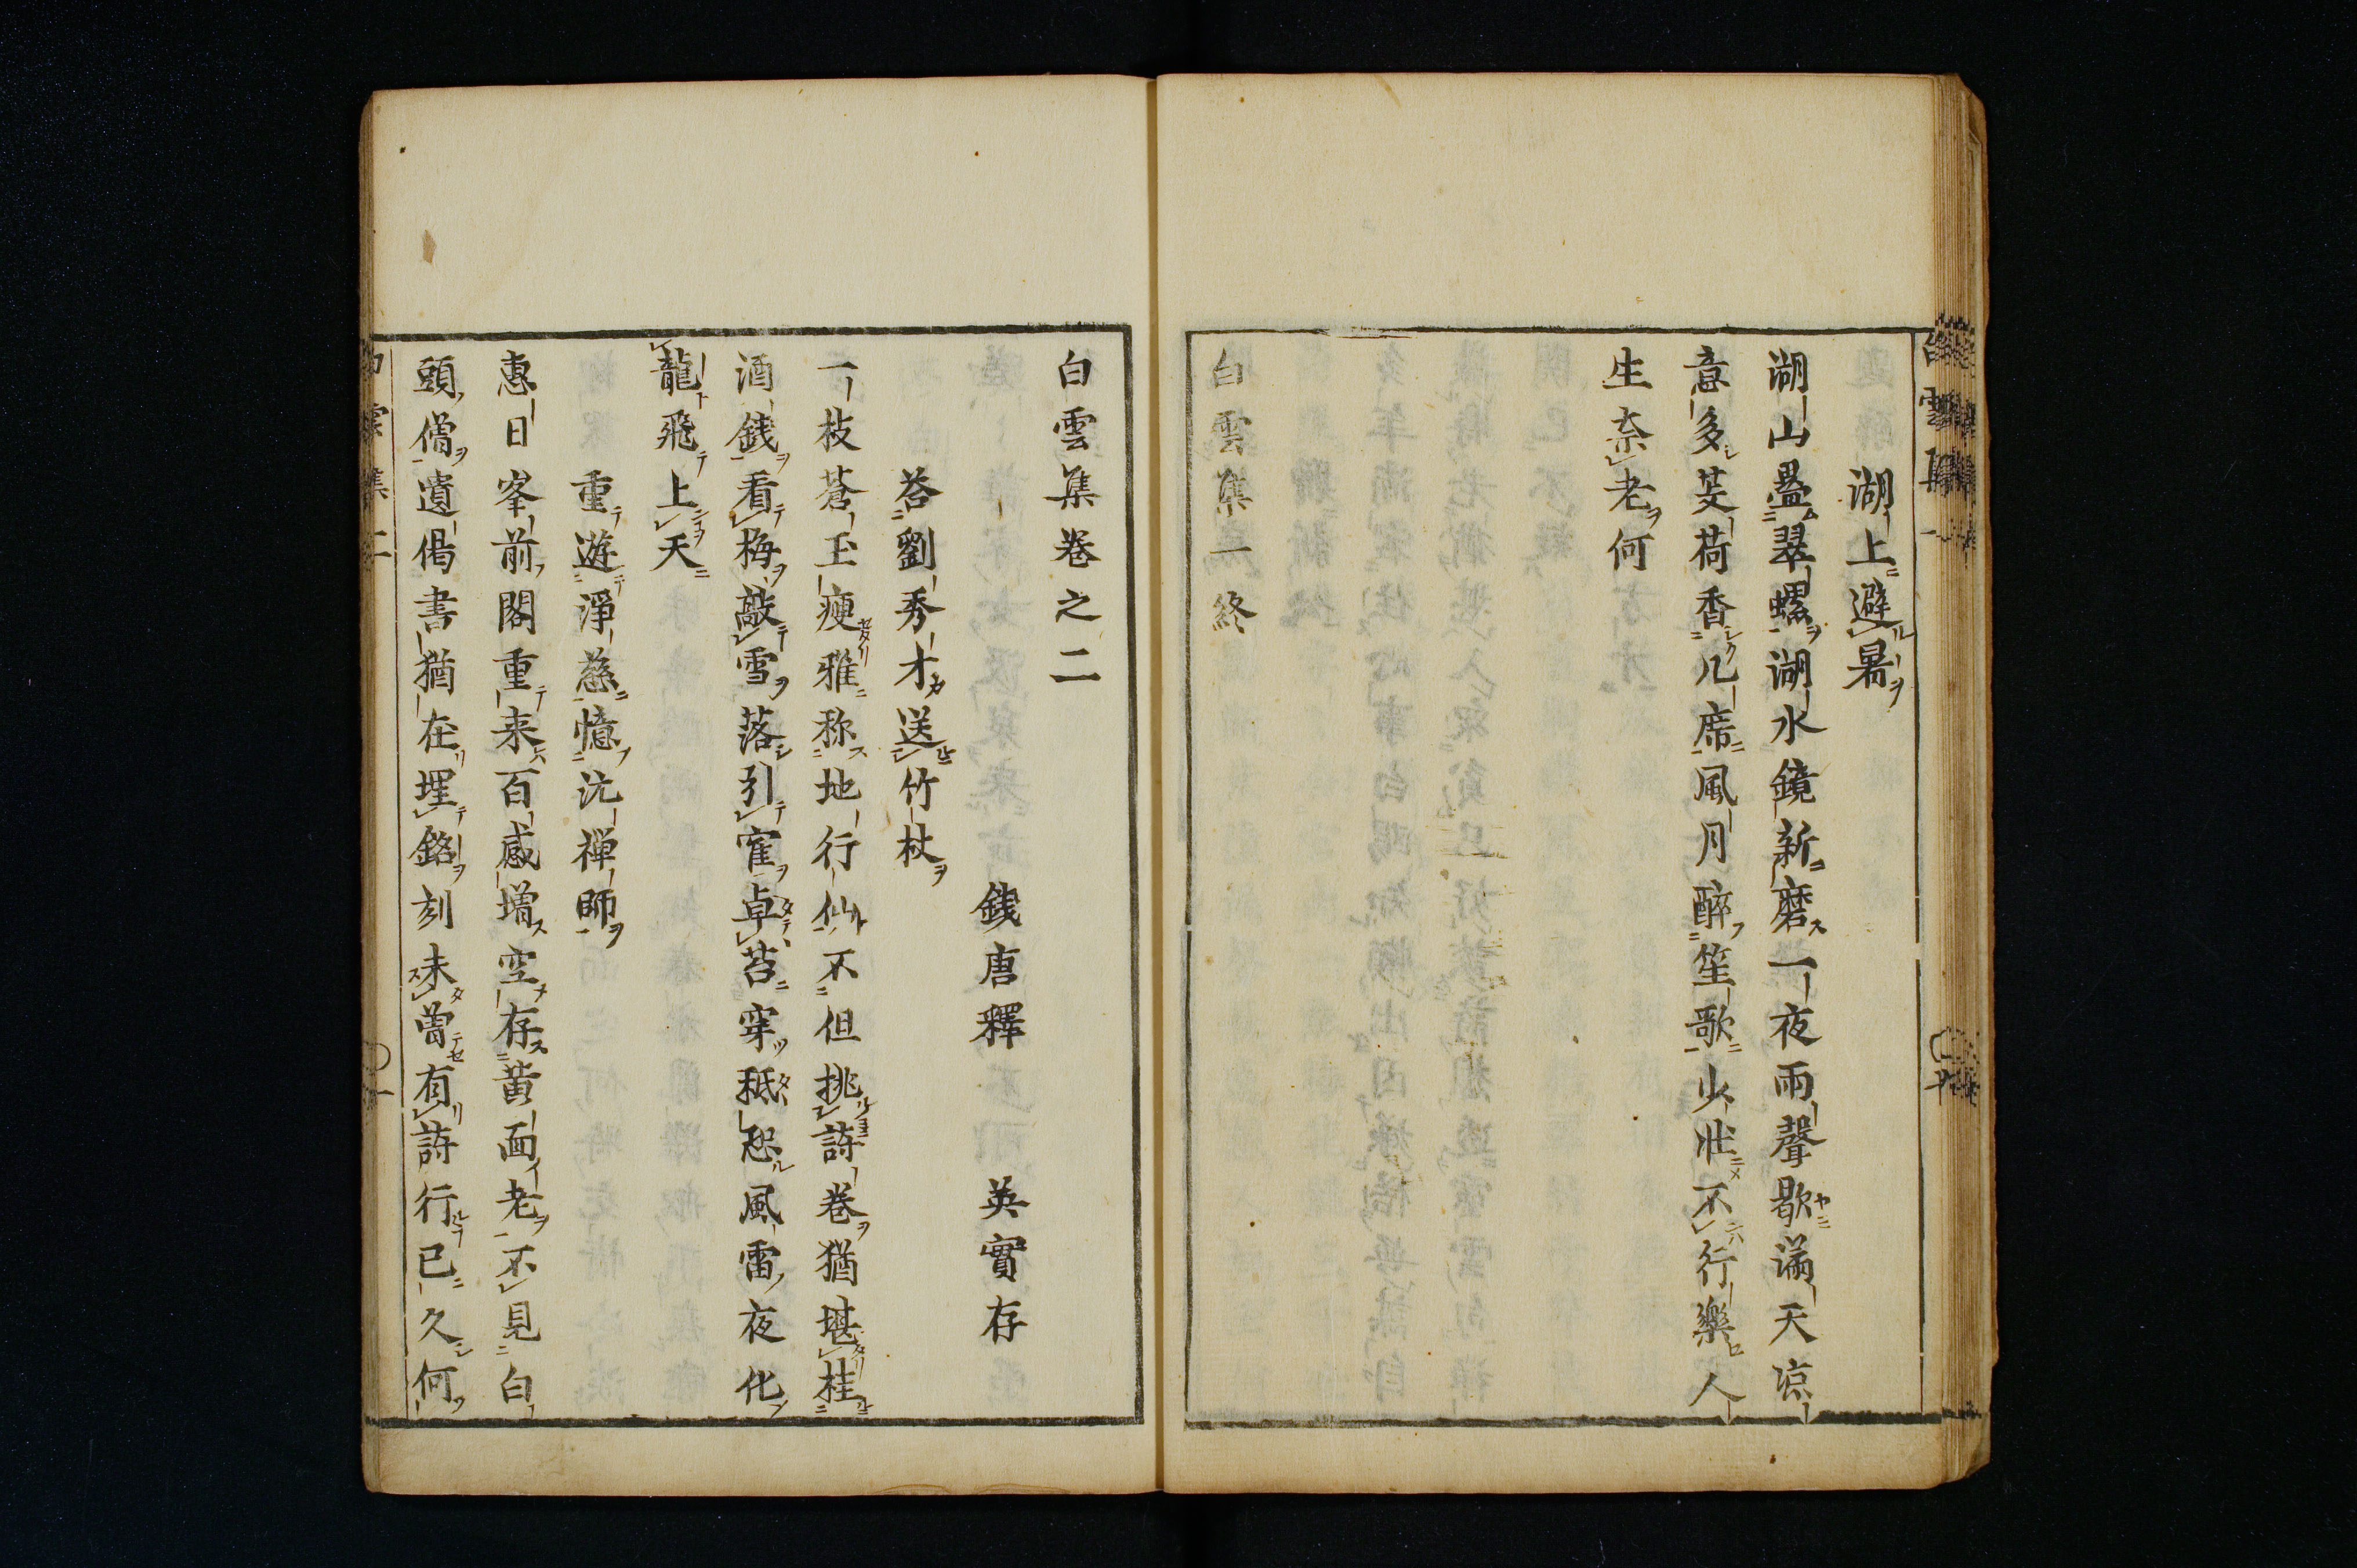 湖上避暑
湖山疊翠螺湖水鏡新磨一夜雨聲歇滿天凉
意多芰荷香几席風月醉笙歌少壯不行樂人
生奈老何
白雲集一終
白雲集卷之二
錢唐釋 英實存
荅劉秀才送竹杖
一枝蒼玉瘦雅称地行仙不但挑詩卷猶堪挂
酒錢看梅敲雪落引寉卓苔穿秪恐風雷夜化
龍飛上天
重遊淨慈憶沅禅師
惠日峯前閣重来百感增空存黄面老不見白
頭僧遺偈書猶在埋銘刻未曾有詩行已久何
白雲集二